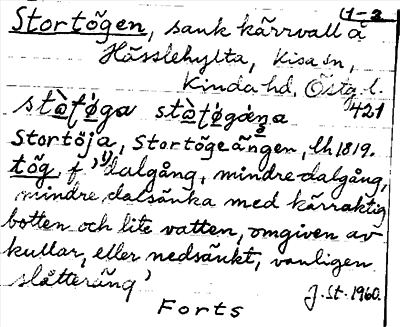 (1-2
Stortögen, sank kärrvall å
Hässlehylta, Kisa sn,
Kinda hd, Östg. l.
421
Stortöja, Stortögeängen, lh 1819.
tög f. 'dalgång, mindre dalgång,
mindre dalsänka med kärraktig
botten och lite vatten, omgiven av
kullar, eller nedsänkt, vanligen
slåtteräng'
J. St. 1960.
Forts